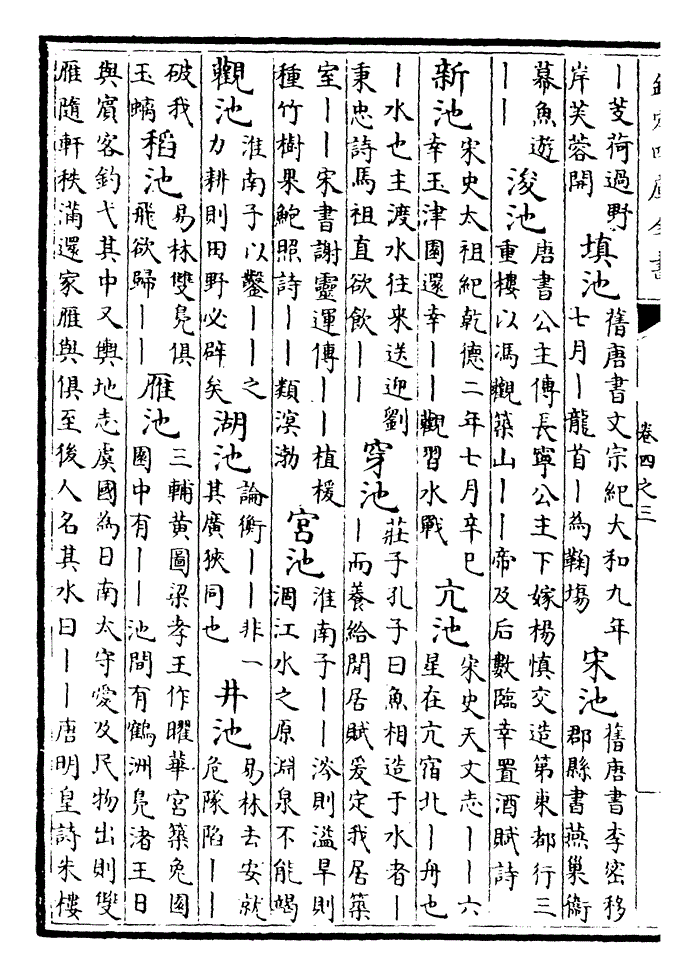 欽定四庫全書
卷四之三
｜芰荷過野
岸芙蓉開
填池
舊唐書文宗紀大和九年
七月｜龍首｜為鞠塲
宋池
舊唐書李密移
郡縣書燕巢衛
幕魚遊
｜｜
浚池
唐書公主傳長寧公主下嫁楊慎交造第東都行三
重樓以馮觀築山｜｜帝及后數臨幸置酒賦詩
新池
宋史太祖紀乾德二年七月辛巳
幸玉津園還幸｜｜觀習水戰
亢池
宋史天文志｜｜六
星在亢宿北｜舟也
｜水也主渡水往来送迎劉
秉忠詩馬祖直欲飲｜｜
穿池
莊子孔子曰魚相造于水者｜
｜而養給閒居賦爰定我居築
室｜｜宋書謝靈運傳｜｜植援
種竹樹果鮑照詩｜｜類溟渤
宫池
淮南子｜｜涔則溢旱則
涸江水之原淵泉不能竭
觀池
淮南子以鑿｜｜之
力耕則田野必辟矣
湖池
論衡｜｜非一
其廣狹同也
井池
易林去安就
危隊陷｜｜
破我
玉螭
稻池
易林雙鳧俱
飛欲歸｜｜
雁池
三輔黃圖梁孝王作曜華宮築兔園
園中有｜｜池間有鶴洲鳧渚王日
與賔客釣弋其中又輿地志虞國為日南太守愛及民物出則雙
雁隨軒秩滿還家雁與俱至後人名其水曰｜｜唐明皇詩朱樓